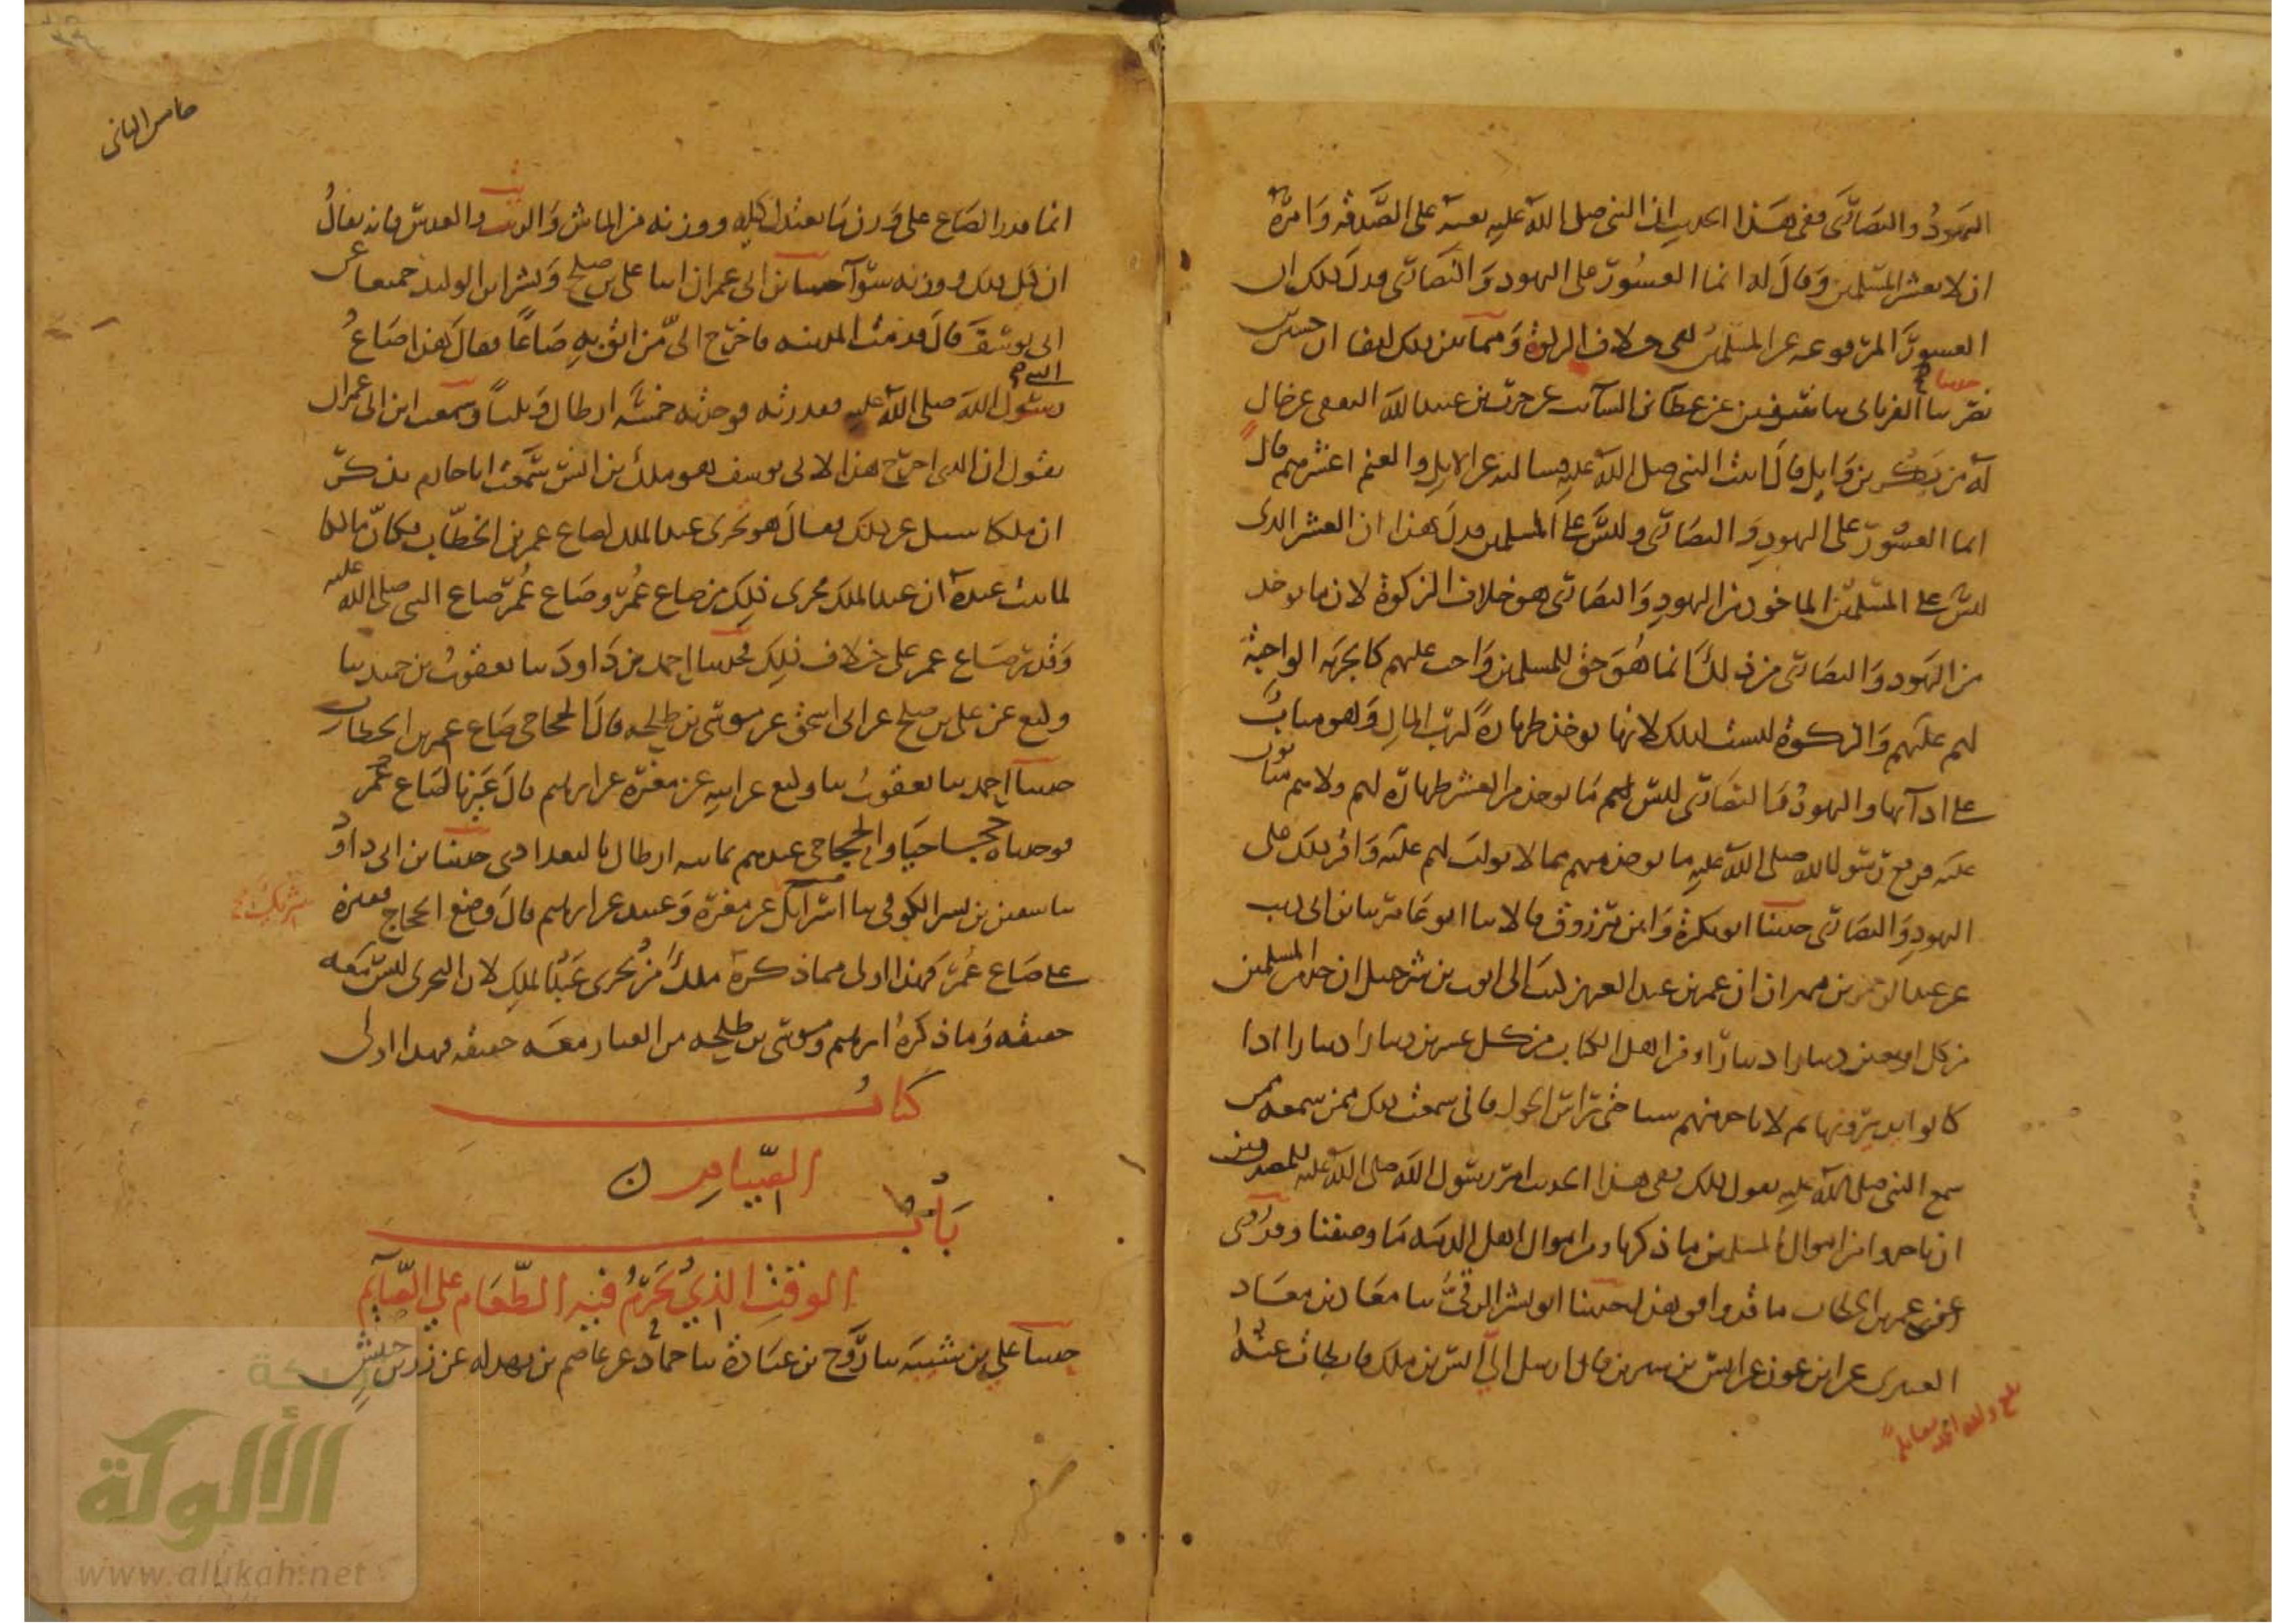 اليهود والنصارى ففي هذا الحديث ان النبي صلى الله عليه بعثه على الصدقة وامره
ان لا يعشر المسلمين وقال له انما العشور على اليهود والنصارى فدل ذلك ان
العشور المرفوعة عن المسلمين هي خلاف الزكوة ومما يبين ذلك ايضا ان حسين بن
نصر حدثنا ثنا الفريابي ثنا سفين عن عطا بن السائب عن حرب بن عبيد الله الثقفي عن خال
له من بكر بن وايل قال اتيت النبي صلى الله عليه فسالته عن الابل والغنم اعشرهم قال
انما العشور على اليهود والنصارى وليس على المسلمين فدل هذا ان العشر الذي
ليس على المسلمين الماخوذ من اليهود والنصارى هو خلاف الزكوة لان ما يوخذ
من اليهود والنصارى من ذلك انما هو حق للمسلمين واجب عليهم كالجزية الواجبة
لهم عليهم والزكوة ليست كذلك لانها توخذ طهارة لرب المال وهو مثاب
على ادآيها واليهود والنصارى ليس لهم ما يوخذ من العشر طهارة لهم ولا هم مثابون
عليه فرفع رسول الله صلى الله عليه ما يوخذ منهم مما لا ثواب لهم عليه واقر ذلك على
اليهود والنصارى حدثنا ابو بكرة وابن مرزوق قالا ثنا ابو عامر ثنا ابن ابي ذيب
عن عبد الرحمن بن مهران ان عمر بن عبد العزيز كتب الى ايوب بن شرحبيل ان خذ من المسلمين
من كل اربعين دينارا دينارا ومن اهل الكتاب من كل عشرين دينارا دينارا اذا
كانوا يديرونها ثم لا تاخذ منهم شيا حتى راس الحول فاني سمعت ذلك ممن سمعه ممن
سمع النبي صلى الله عليه يقول ذلك ففي هذا الحديث امر رسول الله صلى الله عليه للمصدقين
ان ياخذوا من اموال المسلمين ما ذكرنا ومن اموال اهل الذمة ما وصفنا وقد روي
عن عمر بن الخطاب ما قد وافق هذا حدثنا ابو بشر الرقي ثنا معاذ بن معاذ
العنبري عن ابن عون عن انس بن سيرين قال ارسل الي انس بن ملك فابطات عنه
خامس الثاني
انما قدر الصاع على وزن ما يعتدل كيله ووزنه من الماش والزبيب والعدس فانه يقال
ان كيل ذلك ووزنه سوآ حدثنا ابن ابي عمران انبا علي بن صلح وبشر ابن الوليد جميعا عن
ابي يوسف قال قدمت المدينة فاخرج الي من اثق به صاعا فقال هذا صاع
النبي
رسول الله صلى الله عليه فقدرته فوجدته خمسة ارطال وثلثا وسمعت ابن ابي عمران
يقول ان الذي اخرج هذا لابي يوسف هو ملك بن انس سمعت ابا حازم يذكر
ان ملكا سيل عن ذلك فقال هو تحري عبد الملك لصاع عمر بن الخطاب فكان مالكا
لما ثبت عنده ان عبد الملك تحرى ذلك من صاع عمر وصاع عمر صاع النبي صلى الله عليه
وقدر صاع عمر على خلاف ذلك فحدثنا احمد بن داود ثنا يعقوب بن حميد ثنا
وكيع عن علي بن صلح عن ابي اسحق عن موسى بن طلحة قال الحجاجي صاع عمر بن الخطاب
حدثنا احمد ثنا يعقوب ثنا وكيع عن ابيه عن مغيرة عن ابرهيم قال عيرنا صاع عمر
فوجدناه حجاجيا والحجاجي عندهم ثمانية ارطال بالبغدادي حدثنا ابن ابي داود
ثنا سفين بن بشر الكوفي ثنا اسرايل عن مغيرة وعبيدة عن ابرهيم قال وضع الحجاج قفيزه
شريك صح
على صاع عمر فهذا اولى مما ذكره ملك من تحري عبد الملك لان التحري ليس معه
حقيقة وما ذكره ابرهيم وموسى بن طلحة من العيار معه حقيقة فهذا اولى
كتاب
الصيام
باب
الوقت الذي يحرم فيه الطعام على الصايم
حدثنا علي بن شيبة ثنا روح بن عبادة ثنا حماد عن عاصم بن بهدلة عن زر بن حبيش
شبكة
الألوكة
www.alukah.net